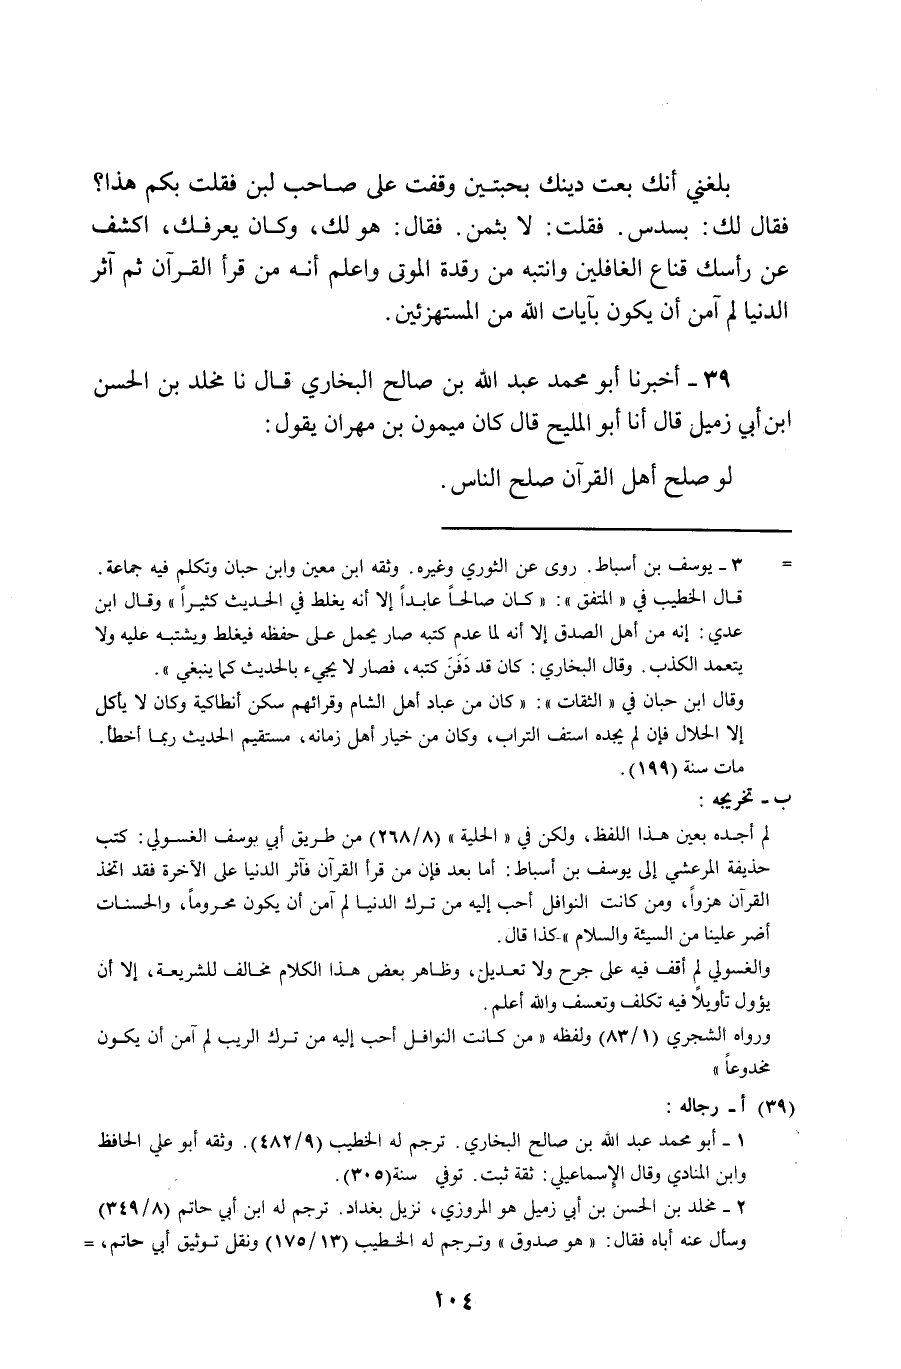 بلغني أنك بعت دينك بحبتين وقفت على صاحب لبن فقلت بكم هذا؟
فقال لك: بسدس. فقلت: لا بثمن. فقال: هو لك، وكان يعرفك، اكشف
عن رأسك قناع الغافلين وانتبه من رقدة الموتى واعلم أنه من قرأ القرآن ثم آثر
الدنيا لم آمن أن يكون بآيات الله من المستهزئين.
٣٩ - أخبرنا أبو محمد عبد الله بن صالح البخاري قال نا مخلد بن الحسن
ابن أبي زميل قال أنا أبو المليح قال كان ميمون بن مهران يقول:
لو صلح أهل القرآن صلح الناس.
= ٣ - يوسف بن أسباط. روى عن الثوري وغيره. وثقه ابن معين وابن حبان وتكلم فيه جماعة.
قال الخطيب في « المتفق »: « كان صالحاً عابداً إلا أنه يغلط في الحديث كثيراً » وقال ابن
عدي: إنه من أهل الصدق إلا أنه لما عدم كتبه صار يحمل على حفظه فيغلط ويشتبه عليه ولا
يتعمد الكذب. وقال البخاري: كان قد دَفَنَ كتبه، فصار لا يجيء بالحديث كما ينبغي ».
وقال ابن حبان في « الثقات »: « كان من عباد أهل الشام وقرائهم سكن أنطاكية وكان لا يأكل
إلا الحلال فإن لم يجده استف التراب، وكان من خيار أهل زمانه، مستقيم الحديث ربما أخطأ.
مات سنة (١٩٩).
ب - تخريجه :
لم أجده بعين هذا اللفظ، ولكن في « الحلية » (٢٦٨/٨) من طريق أبي يوسف الغسولي: كتب
حذيفة المرعشي إلى يوسف بن أسباط: أما بعد فإن من قرأ القرآن فآثر الدنيا على الآخرة فقد اتخذ
القرآن هزواً، ومن كانت النوافل أحب إليه من ترك الدنيا لم آمن أن يكون محروماً، والحسنات
أضر علينا من السيئة والسلام »-كذا قال.
والغسولي لم أقف فيه على جرح ولا تعديل، وظاهر بعض هذا الكلام مخالف للشريعة، إلا أن
يؤول تأويلاً فيه تكلف وتعسف والله أعلم.
ورواه الشجري (٨٣/١) ولفظه « من كانت النوافل أحب إليه من ترك الريب لم آمن أن يكون
مخدوعاً »
(٣٩) أ - رجاله :
١ - أبو محمد عبد الله بن صالح البخاري. ترجم له الخطيب (٤٨٢/٩). وثقه أبو علي الحافظ
وابن المنادي وقال الإسماعيلي: ثقة ثبت. توفي سنة(٣٠٥).
٢ - مخلد بن الحسن بن أبي زميل هو المروزي، نزيل بغداد. ترجم له ابن أبي حاتم (٣٤٩/٨)
وسأل عنه أباه فقال: « هو صدوق » وترجم له الخطيب (١٧٥/١٣) ونقل توثيق أبي حاتم، =
١٠٤